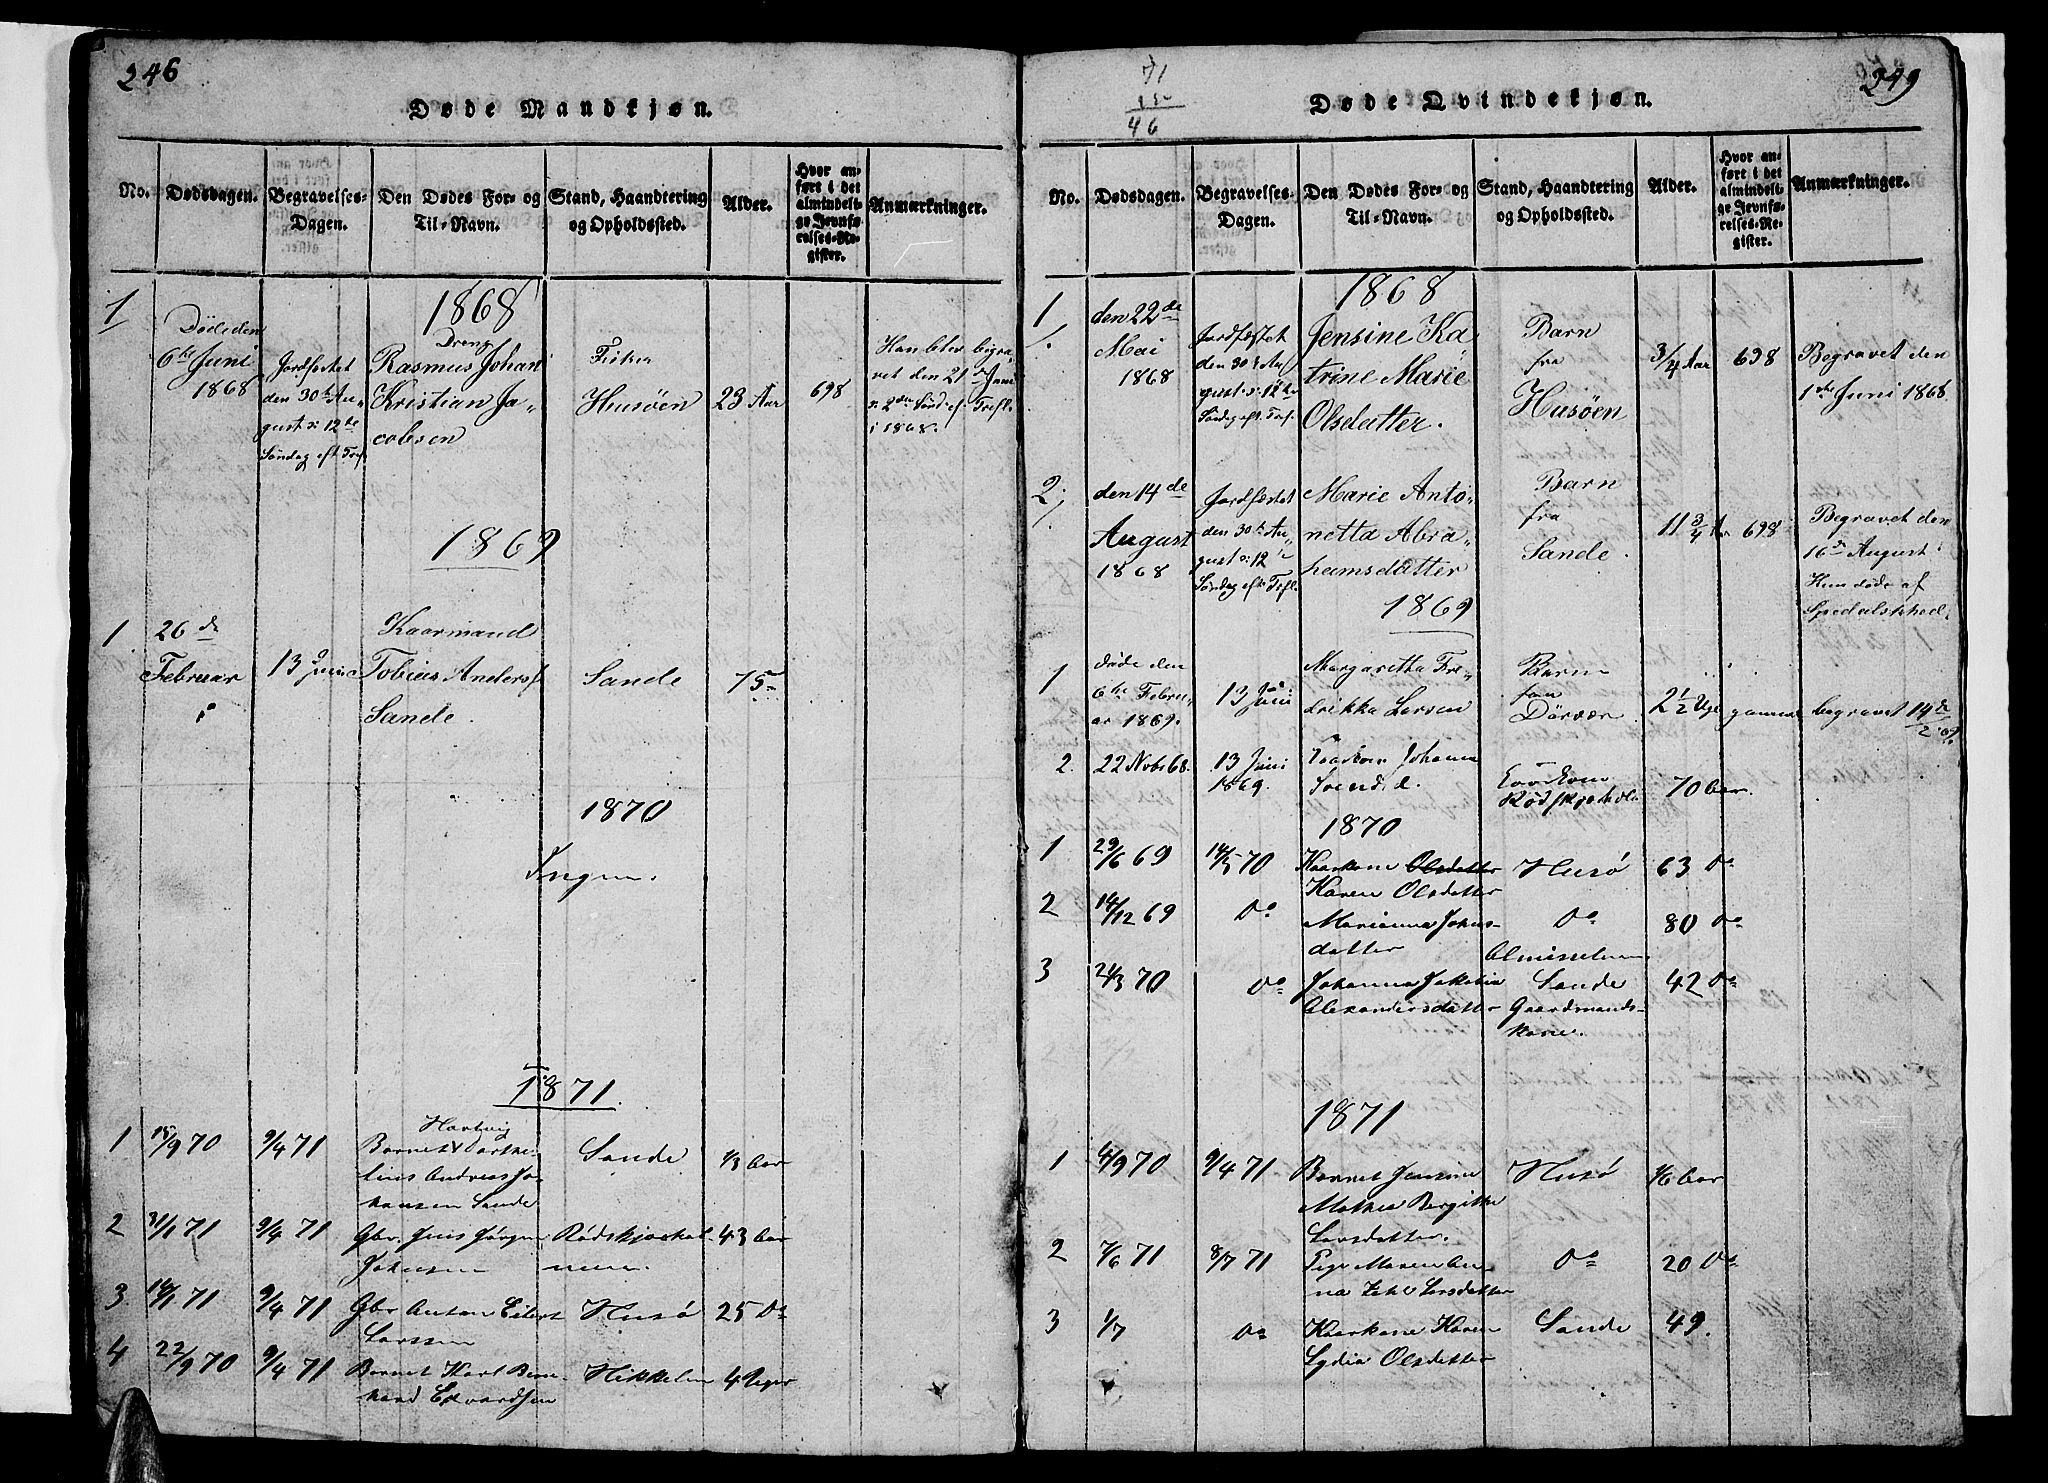 246
Døde Mandkjøn.
No.
Dødsdagen.
Begravelses-
Dagen.
Den Dødes For- og
Til-Navn.
Stand, Haandtering
og Opholdssted.
Alder.
Hvor an-
ført i det
almindeli-
ge Jevnfø-
relses-Re-
gister.
Anmærkninger.
1868
1
Døde den
6te Juni
1868
Jordfæstet
den 30te Au-
gust s: 12te
Søndag eft. Tref.
Dreng
Rasmus Johan
Kristian Ja-
cobsen
Fisker
Husøen
23 Aar
698
Han blev begra-
vet den 21de Juni
s: 2den Sønd. ef. Trefl.
i 1868.
1869
1.
26de
Februar
13de Juni
Kaarmand
Tobias Anders.
Sande.
Sande
75
1870
Ingen.
1871
1
15/9 70
9/4 71
Hartvig
Barnet
lius Andreas Jo-
hansen Sande
Sande
1/3 Aar
2
31/1 71
9/4 71
Gbr. Jens Jørgen
Johnsen
Rødskjæshol-
men.
43 Aar
3.
14/1 71
9/4 71
Gbr Anton Eilert
Larssen
Husø
25 Do
4
22/9 70
9/4 71
Barnet Karl Bern-
hard Edvardsen
Nikkelen
4 Uger
71
25
46
249
Døde Qvindekjøn.
No.
Dødsdagen.
Begravelses-
Dagen.
Den Dødes For- og
Til-Navn.
Stand, Haandtering
og Opholdssted.
Alder.
Hvor an-
ført i det
almindeli-
ge Jevnfø-
relses-Re-
gister.
Anmærkninger.
1868
1.
den 22de
Mai
1868
Jordfæstet
den 30te Au-
gust s: 12te
Søndag eft. Tref.
Jensine Ka-
trine Marie
Olsdatter.
Barn
fra
Husøen
3/4 Aar
698
Begravet den
1ste Juni 1868.
2.
den 14de
August
1868
Jordfæstet
den 30te Au-
gust s: 12te
Søndag eft. Trefl.
Marie Anto-
netta Abra-
hamsdatter
Barn
fra
Sande.
11 3/4 Aar
698
Begravet den
16de August.
Hun døde af
Spedalskhed.
1869
1
døde den
6te Febru-
ar 1869.
13de Juni
Margaretha Fre-
drikka Larsen
Barn
fra
Dørvær
2 1/2 Uge
gammel
begravet 14de
2. 69.
2.
22 Nvbr 68.
13 Juni
1869.
Johanna
Svend. d.
Rødskjæshol.
70 Aar.
1870
1
29/6 69
14/5 70
Kaarkone Olsdatter
Karen Olsdatter
Husø
63 Do
2
14/12 69
Do
Marianna Johns-
datter
Do
80 Do
Almisselem
3
24/3 70
Do
Johanna Jakobia
Alexandersdatter
Sande
Gaardmands-
kone.
42 Do
1871
1
4/9 70
9/4 71
Barnet Jensine
Mathea Bergitte
Larsdatter.
Husø
1/6 Aar
2
7/6 71
8/7 71
Pige Maren An-
na Larsdatter
Do
20 Do
3
1/7
Do
Kaarkone Karen
Lydia Olsdatter
Sande
49.